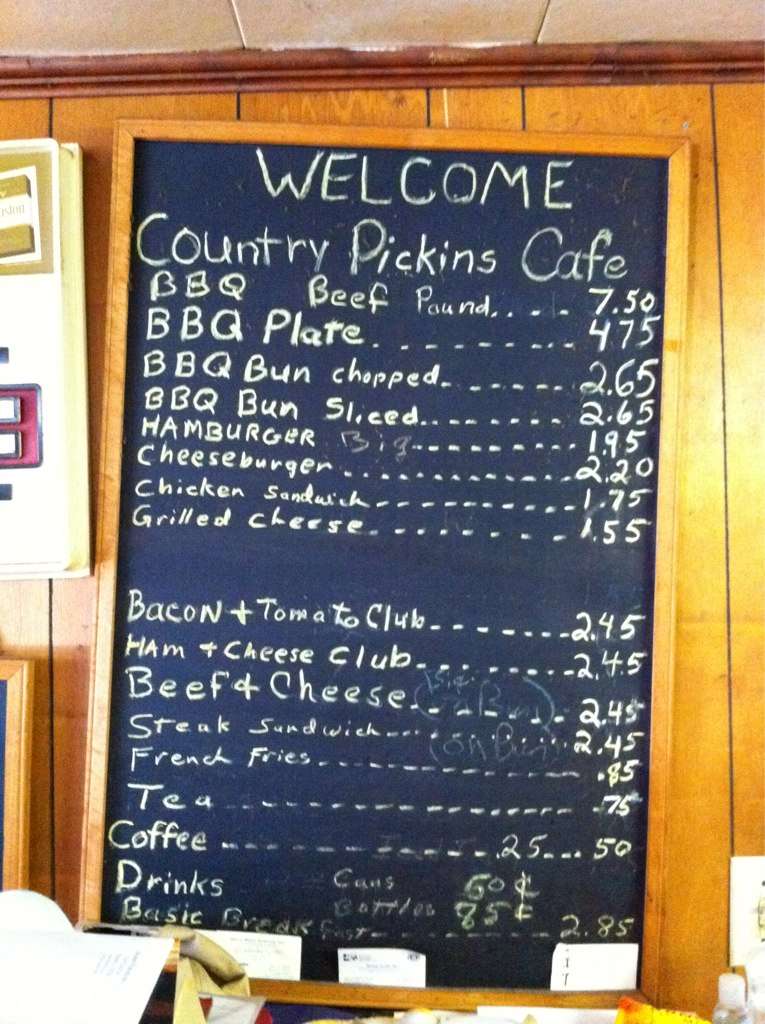 WELCOME
Country Pickins Cafe
BBQ Beef Pound.... 7.50
BBQ Plate. - - - - - - - 475
BBQ Bun chopped. - - - - - - 2.65
BBQ Bun Sliced. - - - - - - - 2.65
HAMBURGER Big - - - - - - - - 1.95
Cheeseburger - - - - - - - - - 2.20
Chicken Sandwich - - - - - - - - 1.75
Grilled cheese. - - - - - - - - 1.55
Bacon + Tomato Club - - - - - - - 2.45
HAM + Cheese Club - - - - - - - 2.45
Beef + Cheese - - - - - - - 2.45
Steak Sandwich - - - - - - - - 2.45
(on Bun)
French Fries - - - - - - - - - .85
Tea - - - - - - - - - - - .75
Coffee - - - - - - .25 ... 50
Drinks Cans 60¢
Bottles 85¢
Basic Breakfast - - - - - - - 2.85